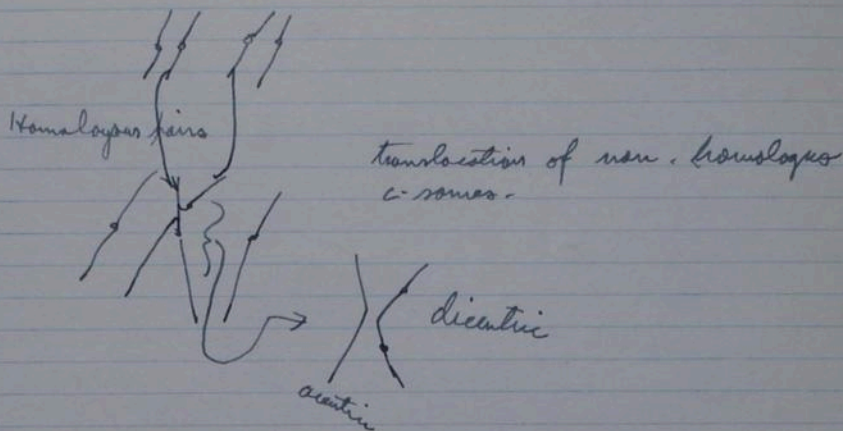 Homologous pairs
translocation of non. homologus
c-somes.
dicentric
acentric